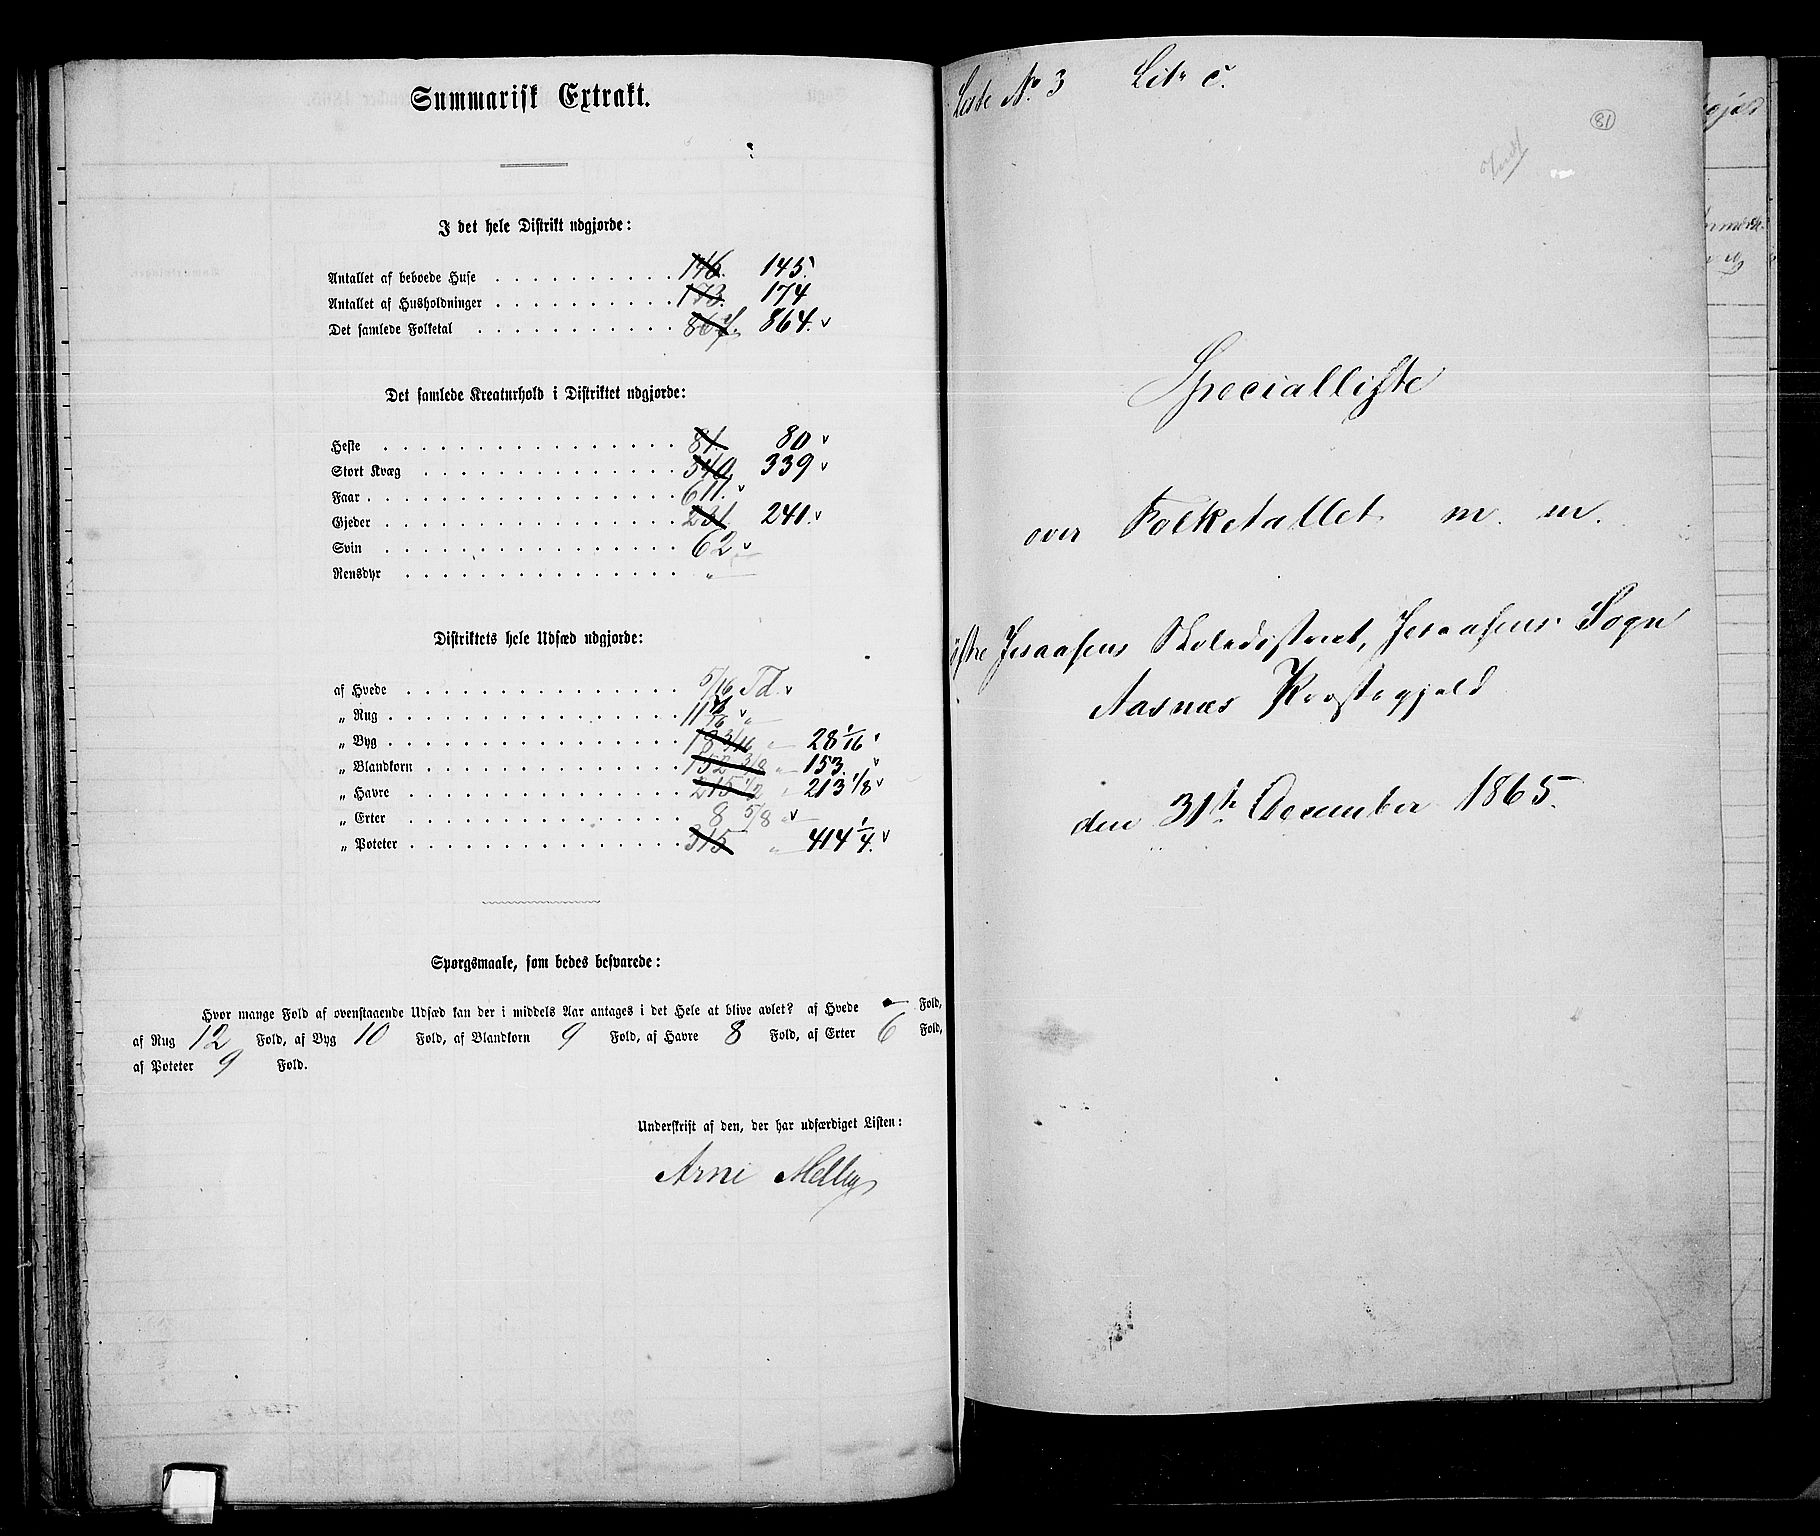 Summarisk Extrakt.
I det hele Distrikt udgjorde:
Antallet af beboede Huse 146. 145.
Antallet af Husholdninger 173. 174
Det samlede Folketal 864. v
Det samlede Kreaturhold i Distriktet udgjorde:
Heste 81. 80 v
Stort Kvæg 340 339 v
Faar 611. v
Gjeder 231. 241. v
Svin 62 v
Rensdyr "
Distriktets hele Udsæd udgjorde:
af Hvede 5/16 Td. v
„ Rug 11 v
„ Byg 18 3/16 28 1/16 v
„ Blandkorn 152 3/8 153. v
„ Havre 215 1/2 213 1/8 v
„ Erter 8 5/8 v
„ Poteter 315 414 1/4. v
Spørgsmaale, som bedes besvarede:
Hvor mange Fold af ovenstaaende Udsæd kan der i middels Aar antages i det Hele at blive avlet? af Hvede — Fold,
af Rug 12 Fold, af Byg 10 Fold, af Blandkorn 9 Fold, af Havre 8 Fold, af Erter 6 Fold,
af Poteter 9 Fold.
Underskrift af den, der har udfærdiget Listen:
Arne Melby
Liste No. 3 Litr C.
81
Specialliste
over Folketallet m. m.
Skoledistrict, Sogn
Aasnæs Præstegjeld
den 31te December 1865.